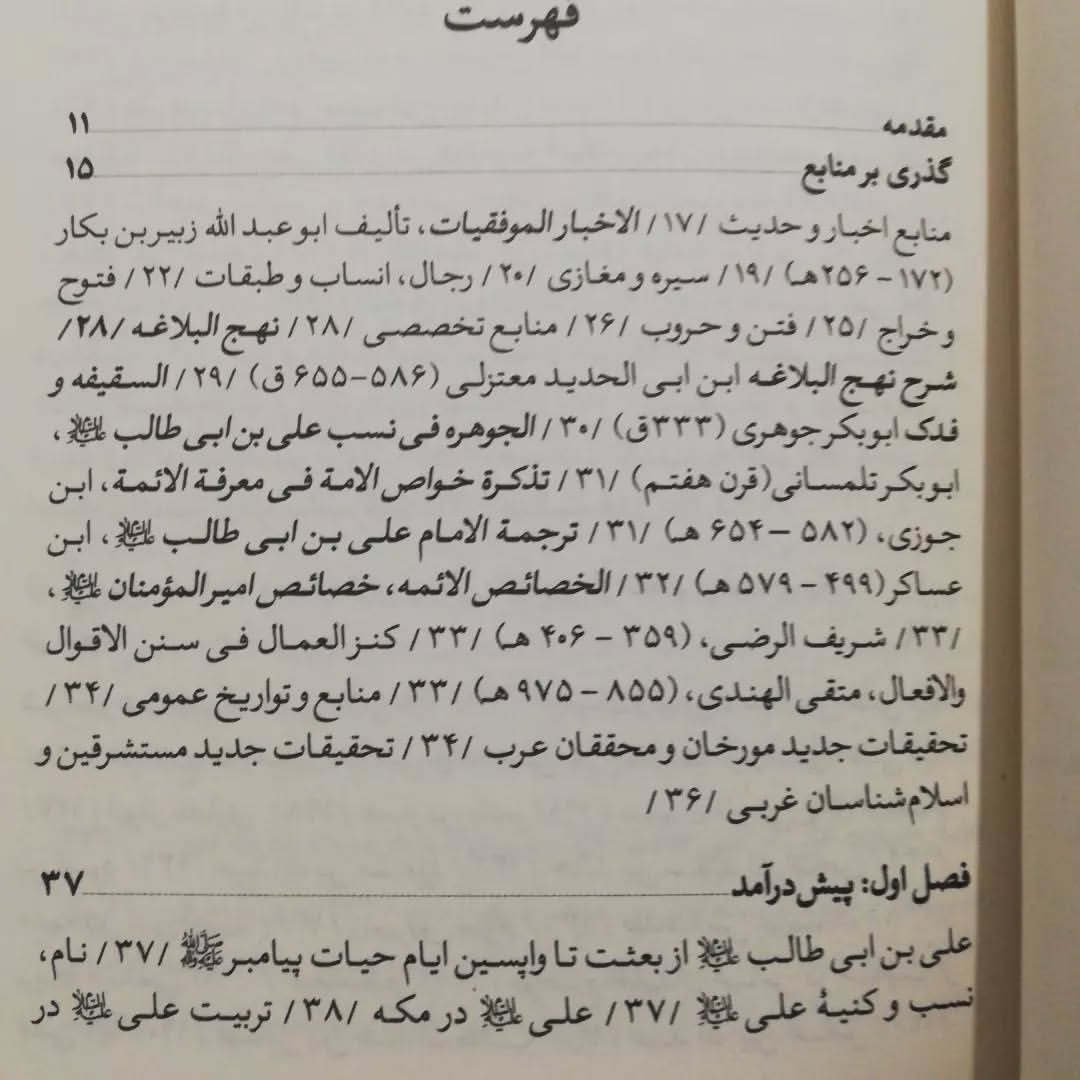 فهرست
مقدمه ۱۱
گذری بر منابع ۱۵
منابع اخبار و حدیث /۱۷/ الاخبار الموفقیات، تألیف ابو عبد الله زبیر بن بکار
(۱۷۲ - ۲۵۶هـ) /۱۹/ سیره و مغازی /۲۰/ رجال، انساب و طبقات /۲۲/ فتوح
و خراج /۲۵/ فتن و حروب /۲۶/ منابع تخصصی /۲۸/ نهج البلاغه /۲۸/
شرح نهج البلاغه ابن ابی الحدید معتزلی (۵۸۶-۶۵۵ ق) /۲۹/ السقیفه و
فدک ابوبکر جوهری (۳۳۳ق) /۳۰/ الجوهره فی نسب علی بن ابی طالب علیه‌السلام،
ابوبکر تلمسانی(قرن هفتم) /۳۱/ تذکرة خواص الامة فی معرفة الائمة، ابن
جوزی، (۵۸۲ - ۶۵۴ هـ) /۳۱/ ترجمة الامام علی بن ابی طالب علیه‌السلام، ابن
عساکر(۴۹۹ - ۵۷۹ هـ) /۳۲/ الخصائص الائمه، خصائص امیرالمؤمنان علیه‌السلام،
/۳۳/ شریف الرضی، (۳۵۹ - ۴۰۶ هـ) /۳۳/ کنز العمال فی سنن الاقوال
والافعال، متقی الهندی، (۸۵۵ - ۹۷۵ هـ) /۳۳/ منابع و تواریخ عمومی /۳۴/
تحقیقات جدید مورخان و محققان عرب /۳۴/ تحقیقات جدید مستشرقین و
اسلام‌شناسان غربی /۳۶/
فصل اول: پیش‌درآمد ۳۷
علی بن ابی طالب علیه‌السلام از بعثت تا واپسین ایام حیات پیامبر ﷺ /۳۷/ نام،
نسب و کنیهٔ علی علیه‌السلام /۳۷/ علی علیه‌السلام در مکه /۳۸/ تربیت علی علیه‌السلام در